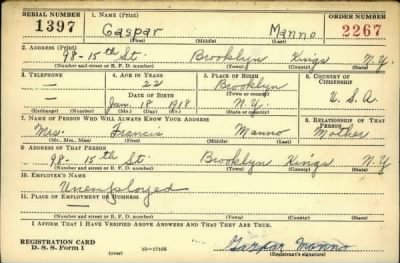 SERIAL NUMBER 1. NAME (Print) ORDER NUMBER
1397 Gaspar Manno 2267
(First) (Middle) (Last)
2. ADDRESS (Print)
98 - 15th St. Brooklyn Kings N.Y.
(Number and street or R. F. D. number) (Town) (County) (State)
3. TELEPHONE 4. AGE IN YEARS 5. PLACE OF BIRTH 6. COUNTRY OF CITIZENSHIP
— 22 Brooklyn
DATE OF BIRTH (Town or county)
— Jan. 18 1918 N.Y. U.S.A.
(Exchange) (Number) (Mo.) (Day) (Yr.) (State or country)
7. NAME OF PERSON WHO WILL ALWAYS KNOW YOUR ADDRESS 8. RELATIONSHIP OF THAT PERSON
Mrs. Francis Manno Mother
(Mr., Mrs., Miss) (First) (Middle) (Last)
9. ADDRESS OF THAT PERSON
98 - 15th St. Brooklyn Kings N.Y.
(Number and street or R. F. D. number) (Town) (County) (State)
10. EMPLOYER'S NAME
Unemployed
11. PLACE OF EMPLOYMENT OR BUSINESS
(Number and street or R. F. D. number) (Town) (County) (State)
I AFFIRM THAT I HAVE VERIFIED ABOVE ANSWERS AND THAT THEY ARE TRUE.
REGISTRATION CARD
D. S. S. Form 1 (over) 16—17105 Gaspar Manno
(Registrant's signature)